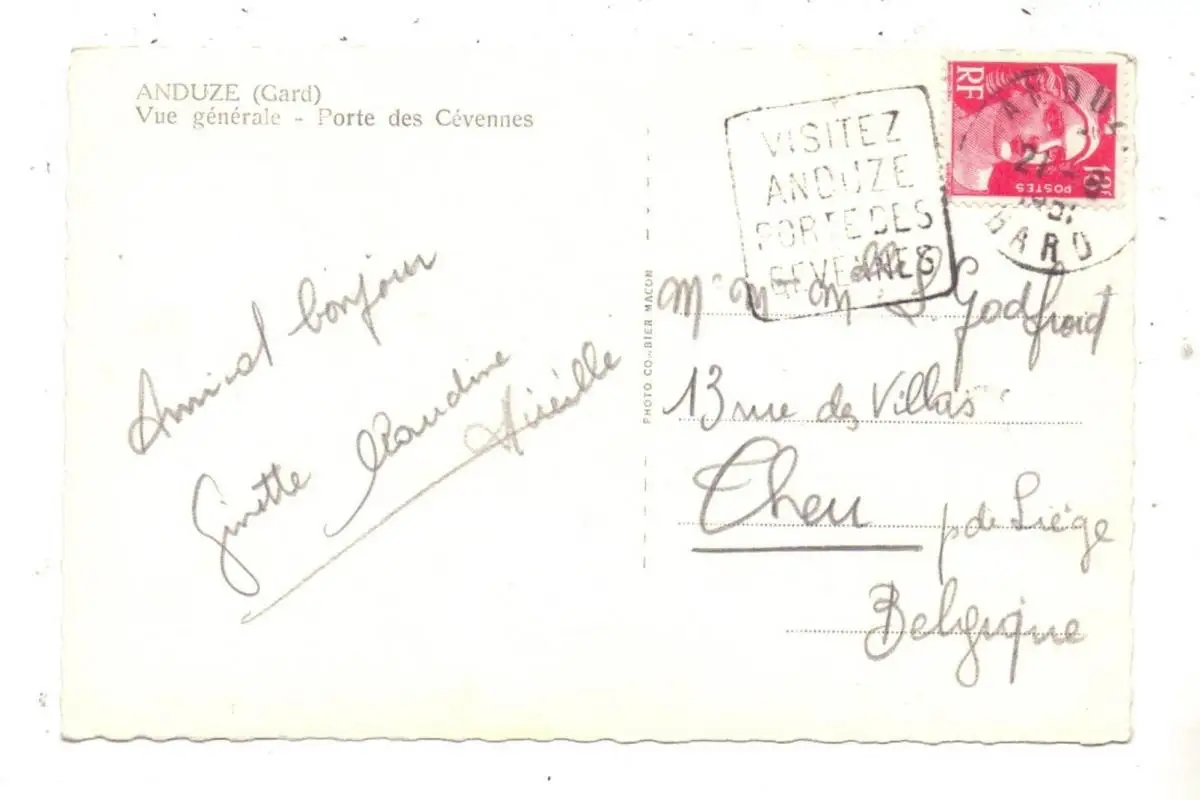 ANDUZE (Gard)
Vue générale - Porte des Cévennes
Amical bonjour
Ginette Claudine
Mireille
PHOTO COMBIER MACON
VISITEZ
ANDUZE
PORTE DES
CEVENNES
RF
POSTES
ANDUZE
27 - 8
1951
GARD
Mr Mme Melle L Godfroid
13 rue des Villas
Theu
p de Liège
Belgique